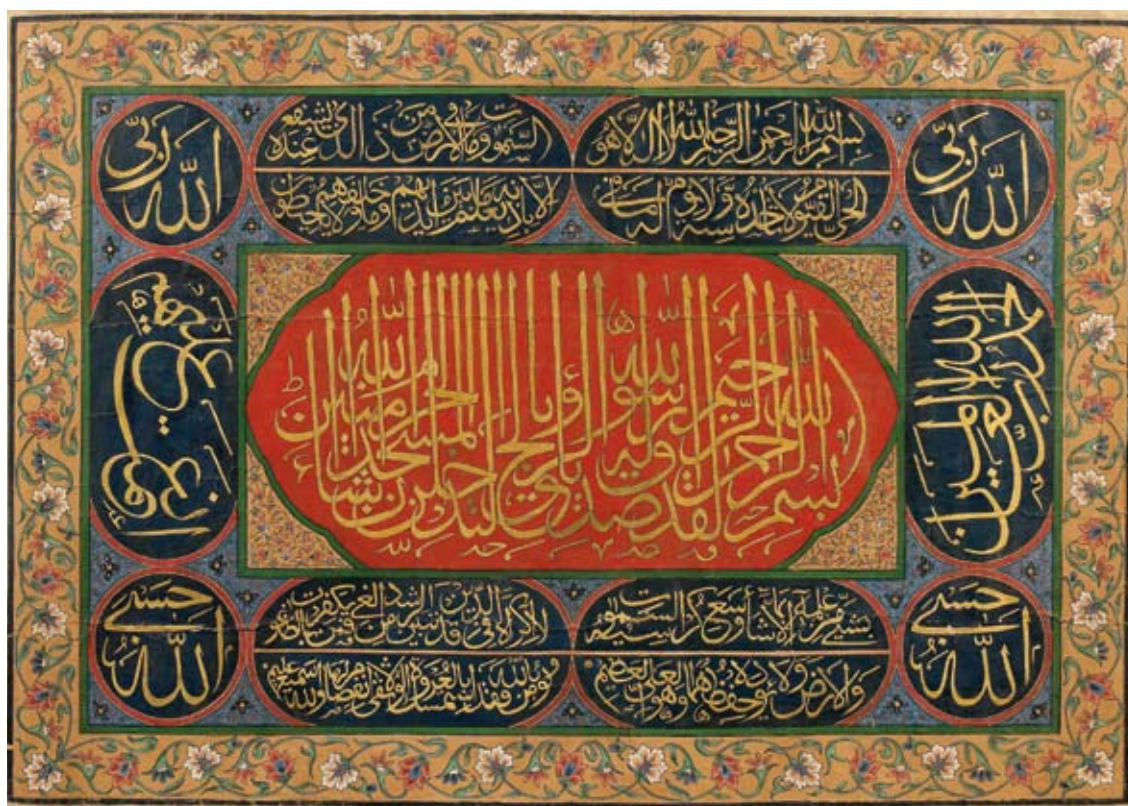 الله ربي
بسم الله الرحمن الرحيم الله لا اله الا هو
الحي القيوم لا تأخذه سنة ولا نوم له ما في
السموات وما في الارض من ذا الذي يشفع عنده
الا باذنه يعلم ما بين ايديهم وما خلفهم ولا يحيطون
الله ربي
الحمد لله رب العالمين
بسم الله الرحمن الرحيم لقد صدق الله رسوله الرؤيا بالحق لتدخلن المسجد الحرام ان شاء الله آمنين
انعمت عليهم
حسبي الله
بشيء من علمه الا بما شاء وسع كرسيه السموات
والارض ولا يؤده حفظهما وهو العلي العظيم
لا اكراه في الدين قد تبين الرشد من الغي فمن يكفر بالطاغوت
ويؤمن بالله فقد استمسك بالعروة الوثقى لا انفصام لها والله سميع عليم
حسبي الله